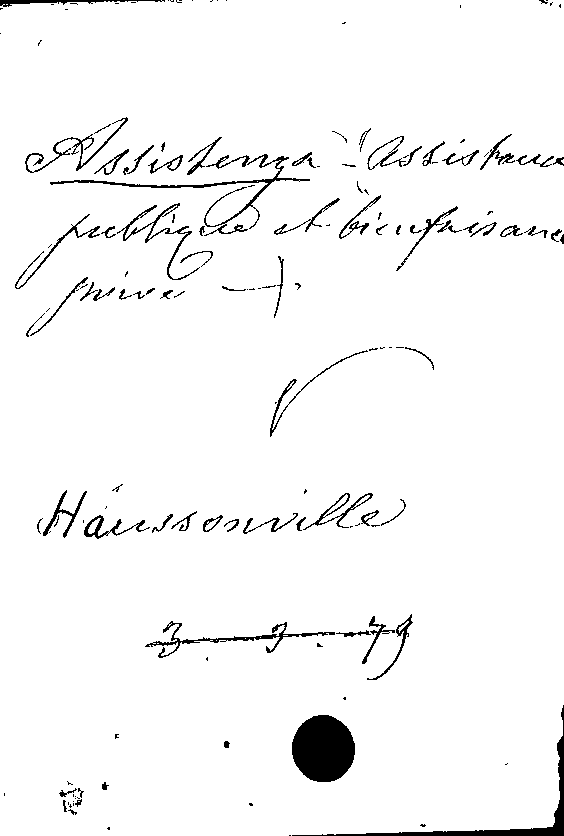 Assistenza - "Assistance
publique et bienfaisance
privé" -
Haussonville
3 . 3 . 79